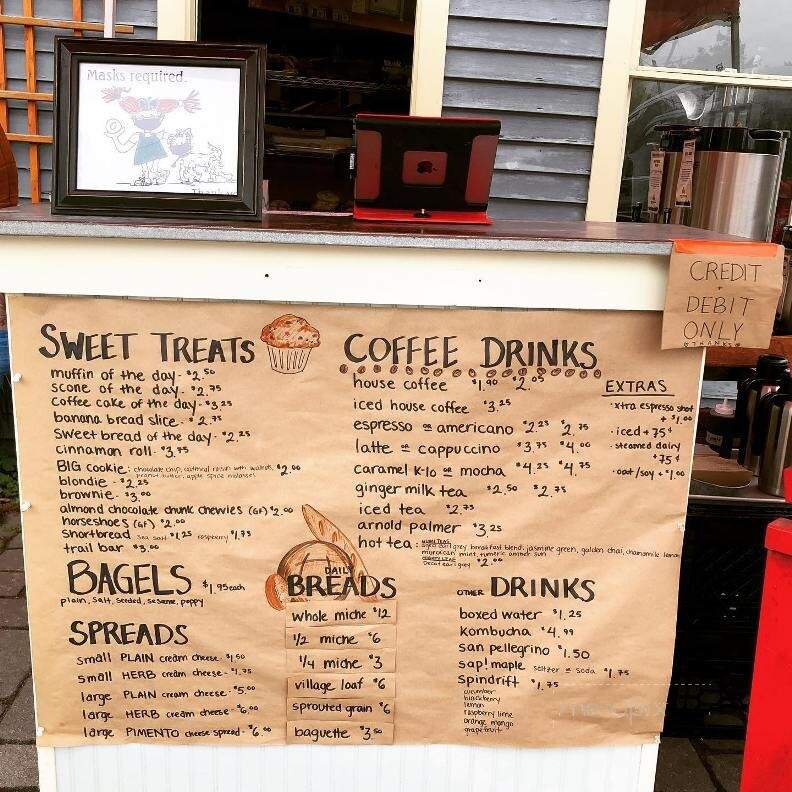 Masks required.
CREDIT
+
DEBIT
ONLY
THANKS
SWEET TREATS
muffin of the day - $2.50
scone of the day - $2.75
Coffee cake of the day - $3.25
banana bread slice - $2.75
Sweet bread of the day - $2.25
cinnamon roll - $3.75
BIG cookie: chocolate chip, oatmeal raisin with walnuts, $2.00
peanut butter, apple spice molasses
blondie - $2.25
brownie - $3.00
almond chocolate chunk chewies (GF) $2.00
horseshoes (GF) $2.00
Shortbread sea salt $1.25 raspberry $1.75
trail bar $3.00
BAGELS $1.95 each
plain, salt, seeded, sesame, poppy
SPREADS
small PLAIN cream cheese - $1.50
small HERB cream cheese - $1.75
large PLAIN cream cheese - $5.00
large HERB cream cheese - $6.00
large PIMENTO cheese spread - $6.00
DAILY
BREADS
whole miche $12
1/2 miche $6
1/4 miche $3
village loaf $6
sprouted grain $6
baguette $3.50
COFFEE DRINKS
house coffee $1.90 $2.05
iced house coffee $3.25
espresso or americano $2.25 $2.75
latte or cappuccino $3.75 $4.00
caramel k-lo or mocha $4.25 $4.75
ginger milk tea $2.50 $2.75
iced tea $2.75
arnold palmer $3.25
hot tea:
earl grey, breakfast blend, jasmine green, golden chai, chamomile lemon
moroccan mint, turmeric amber sun
Decaf earl grey $2.00
EXTRAS
· xtra espresso shot
+ $1.00
· iced + 75¢
· steamed dairy
+ 75¢
· oat/soy + $1.00
OTHER DRINKS
boxed water $1.25
kombucha $4.99
san pellegrino $1.50
sap! maple seltzer or soda $1.75
Spindrift $1.75
cucumber
blackberry
lemon
raspberry lime
orange mango
grapefruit